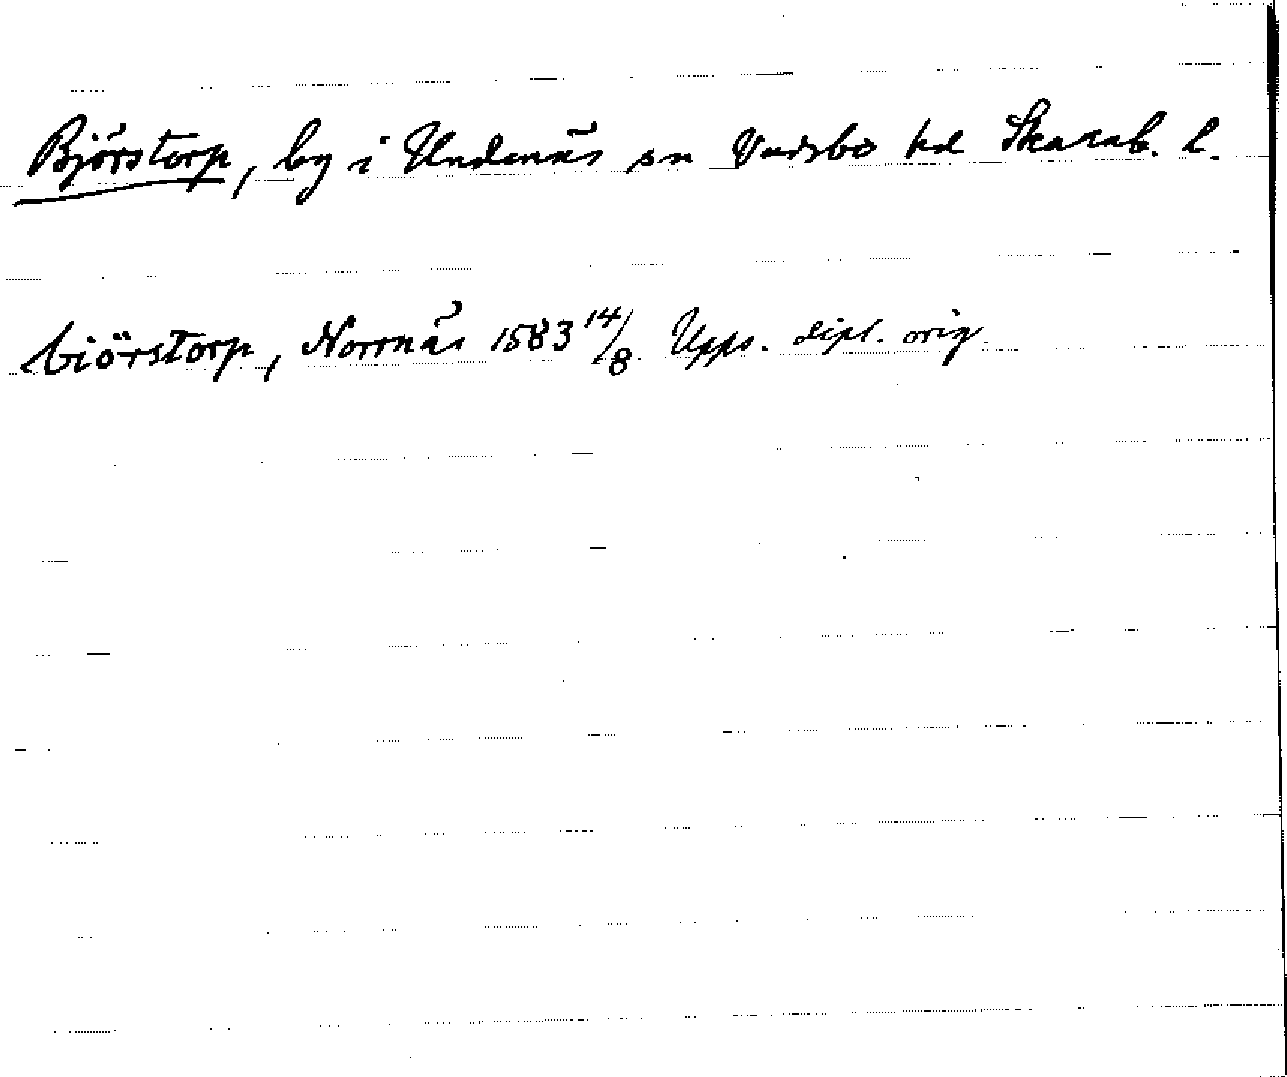 Björstorp, by i Undenäs sn Vadsbo hd Skarab. l.
biörstorp, Norrnäs 1583 14/8 Upps. dipl. orig